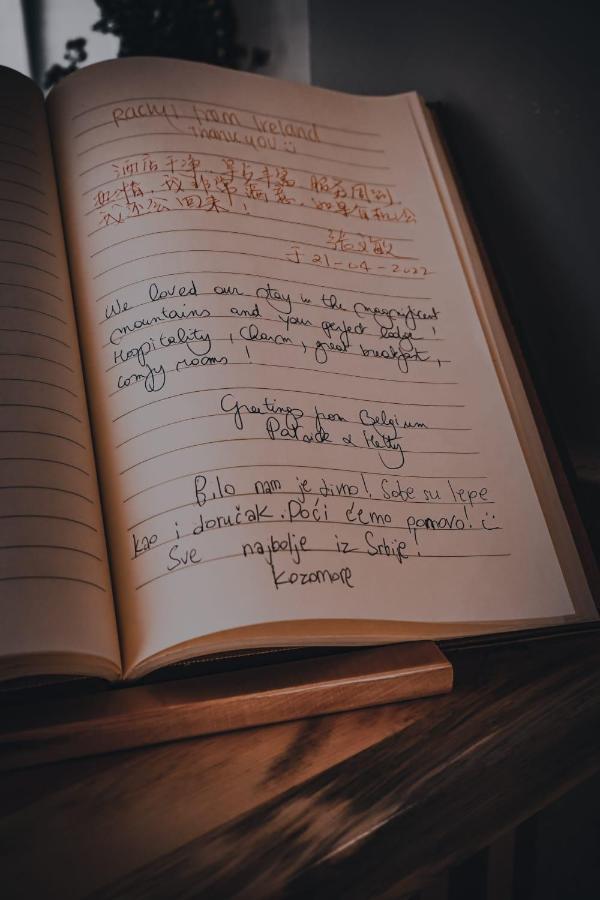 from Ireland
Thank you
酒店干净,早占丰富,服务周到,
热情,我非常满意,如果有机会
我还会回来!
张文敏
于21-04-2022
We loved our stay in the magnificent
mountains and your perfect lodge!
Hospitality, Charm, great breakfast,
comfy rooms!
Greetings from Belgium
& Hetty
Bilo nam je divno! Sobe su lepe
kao i doručak. Doći ćemo ponovo!
Sve najbolje iz Srbije!